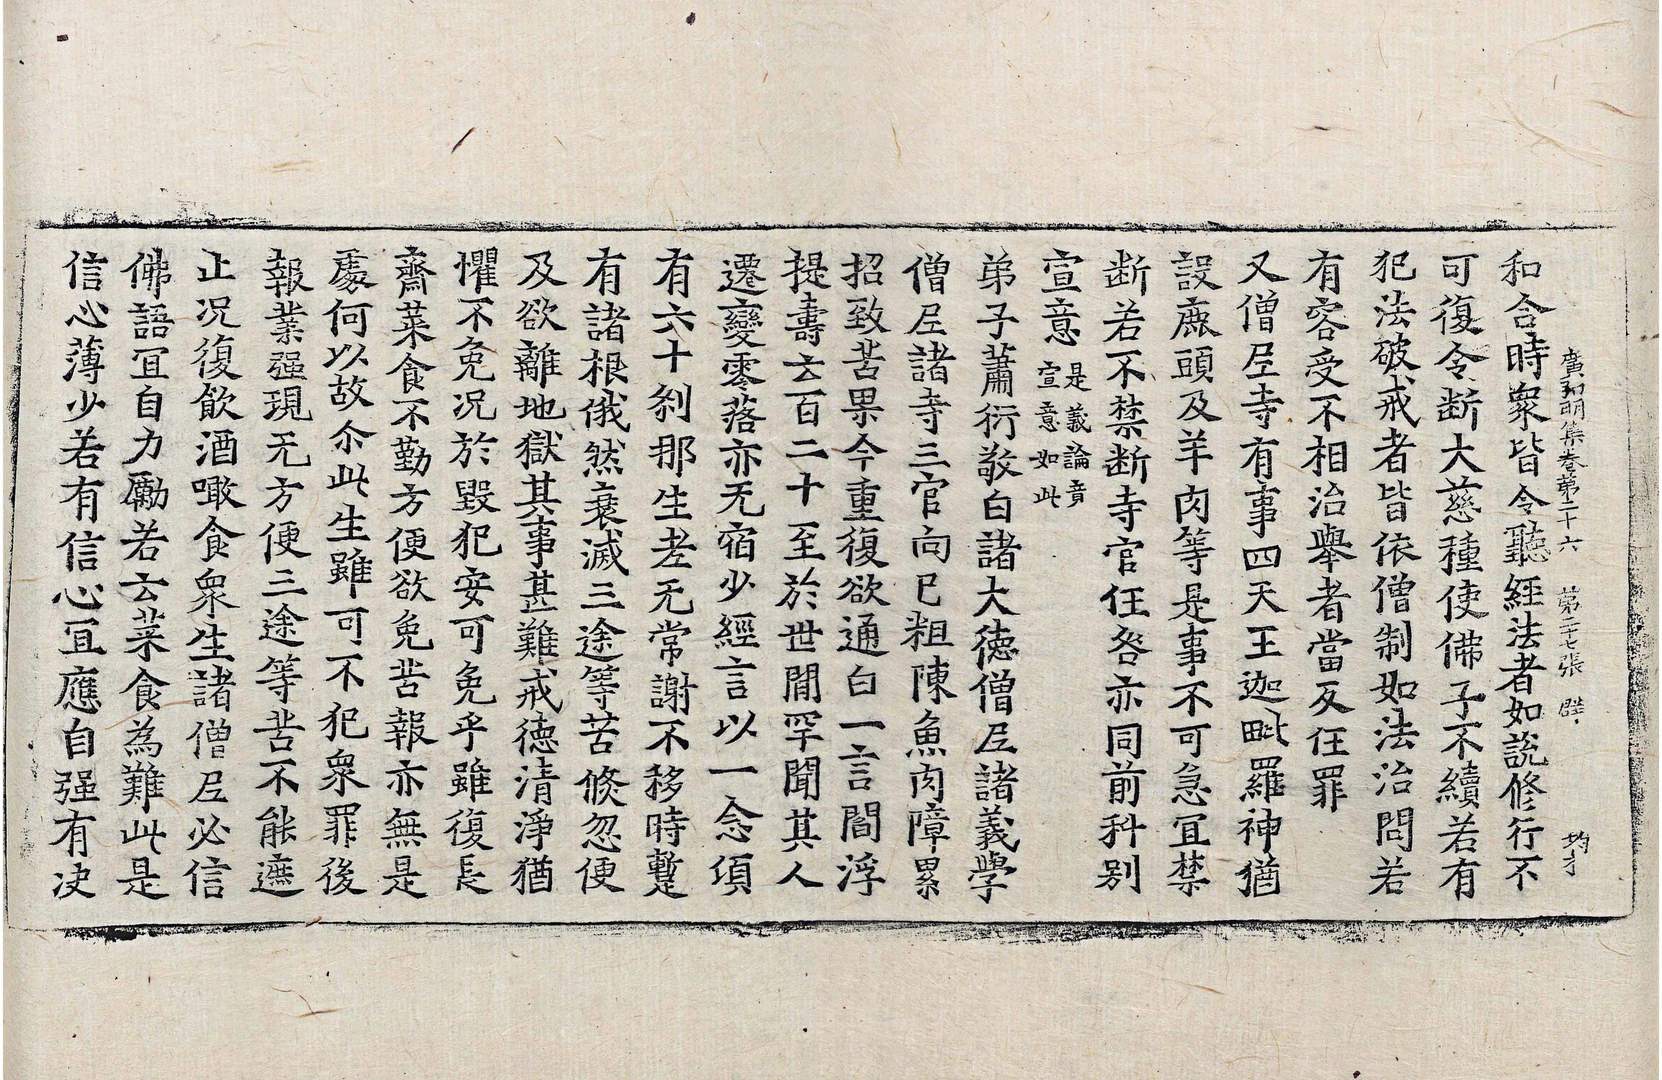 廣弘明集卷第二十六　第二十七張　壁　均才
和合時衆皆令聽經法者如說修行不
可復令断大慈種使佛子不續若有
犯法破戒者皆依僧制如法治問若
有容受不相治舉者當反任罪
又僧尼寺有事四天王迦毗羅神猶
設鹿頭及羊肉等是事不可急冝禁
断若不禁断寺官任咎亦同前科别
宣意是義論竟宣意如此
弟子蕭衍敬白諸大德僧尼諸義學
僧尼諸寺三官向已粗陳魚肉障累
招致苦果今重復欲通白一言閻浮
提壽云百二十至於世間罕聞其人
遷變零落亦无宿少經言以一念頃
有六十刹那生老无常謝不移時蹔
有諸根俄然衰滅三途等苦倏忽便
及欲離地獄其事甚難戒德清淨猶
懼不免况於毀犯安可免乎雖復長
齋菜食不勤方便欲免苦報亦無是
處何以故尒此生雖可不犯衆罪後
報業强現无方便三途等苦不能遮
止况復飲酒噉食衆生諸僧尼必信
佛語冝自力勵若云菜食為難此是
信心薄少若有信心冝應自强有决